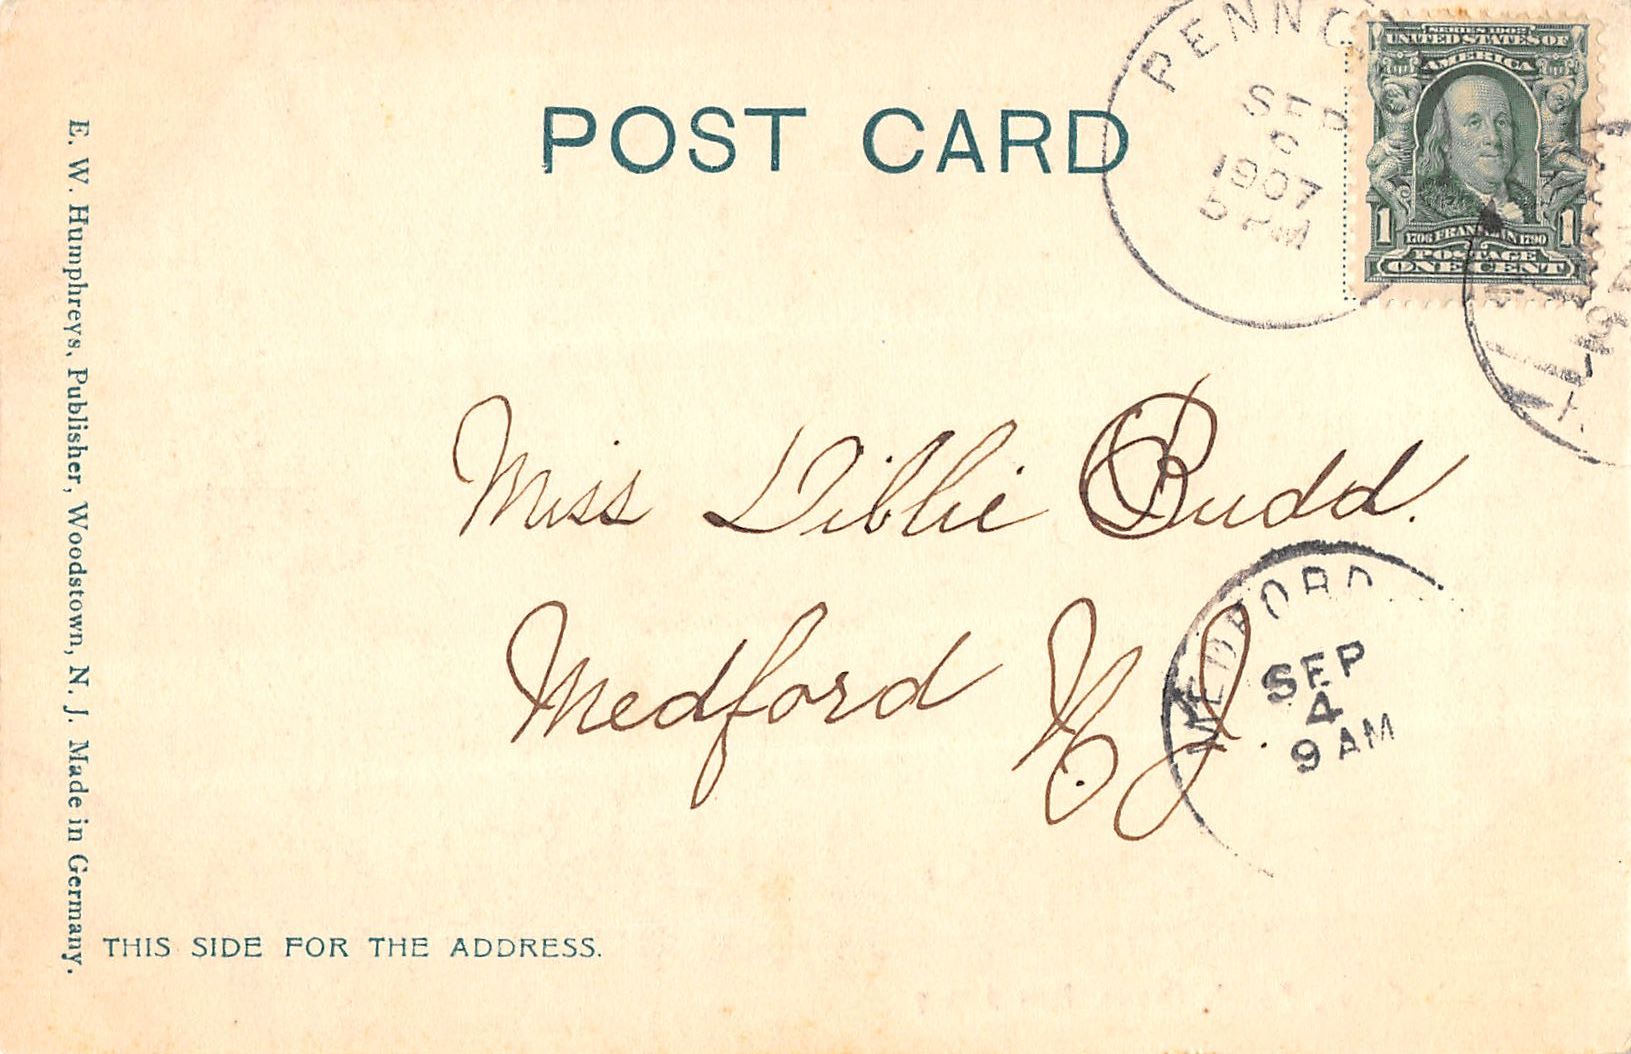 PENNG
SEP
6
1907
5 PM
SERIES 1902
UNITED STATES OF
AMERICA
1
1706 FRANKLIN 1790
1
POSTAGE
ONE CENT
POST CARD
E. W. Humphreys, Publisher, Woodstown, N. J. Made in Germany.
Miss Libbie Budd.
Medford N.J.
MEDFORD
SEP
4
9 AM
THIS SIDE FOR THE ADDRESS.